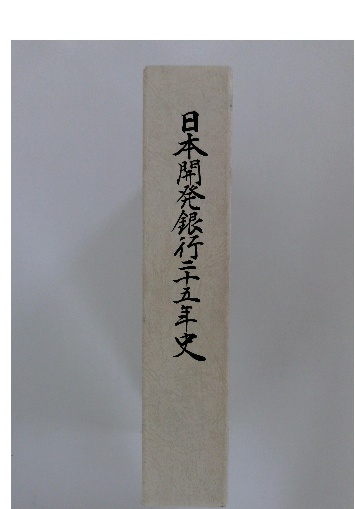 日本開発銀行二十五年史